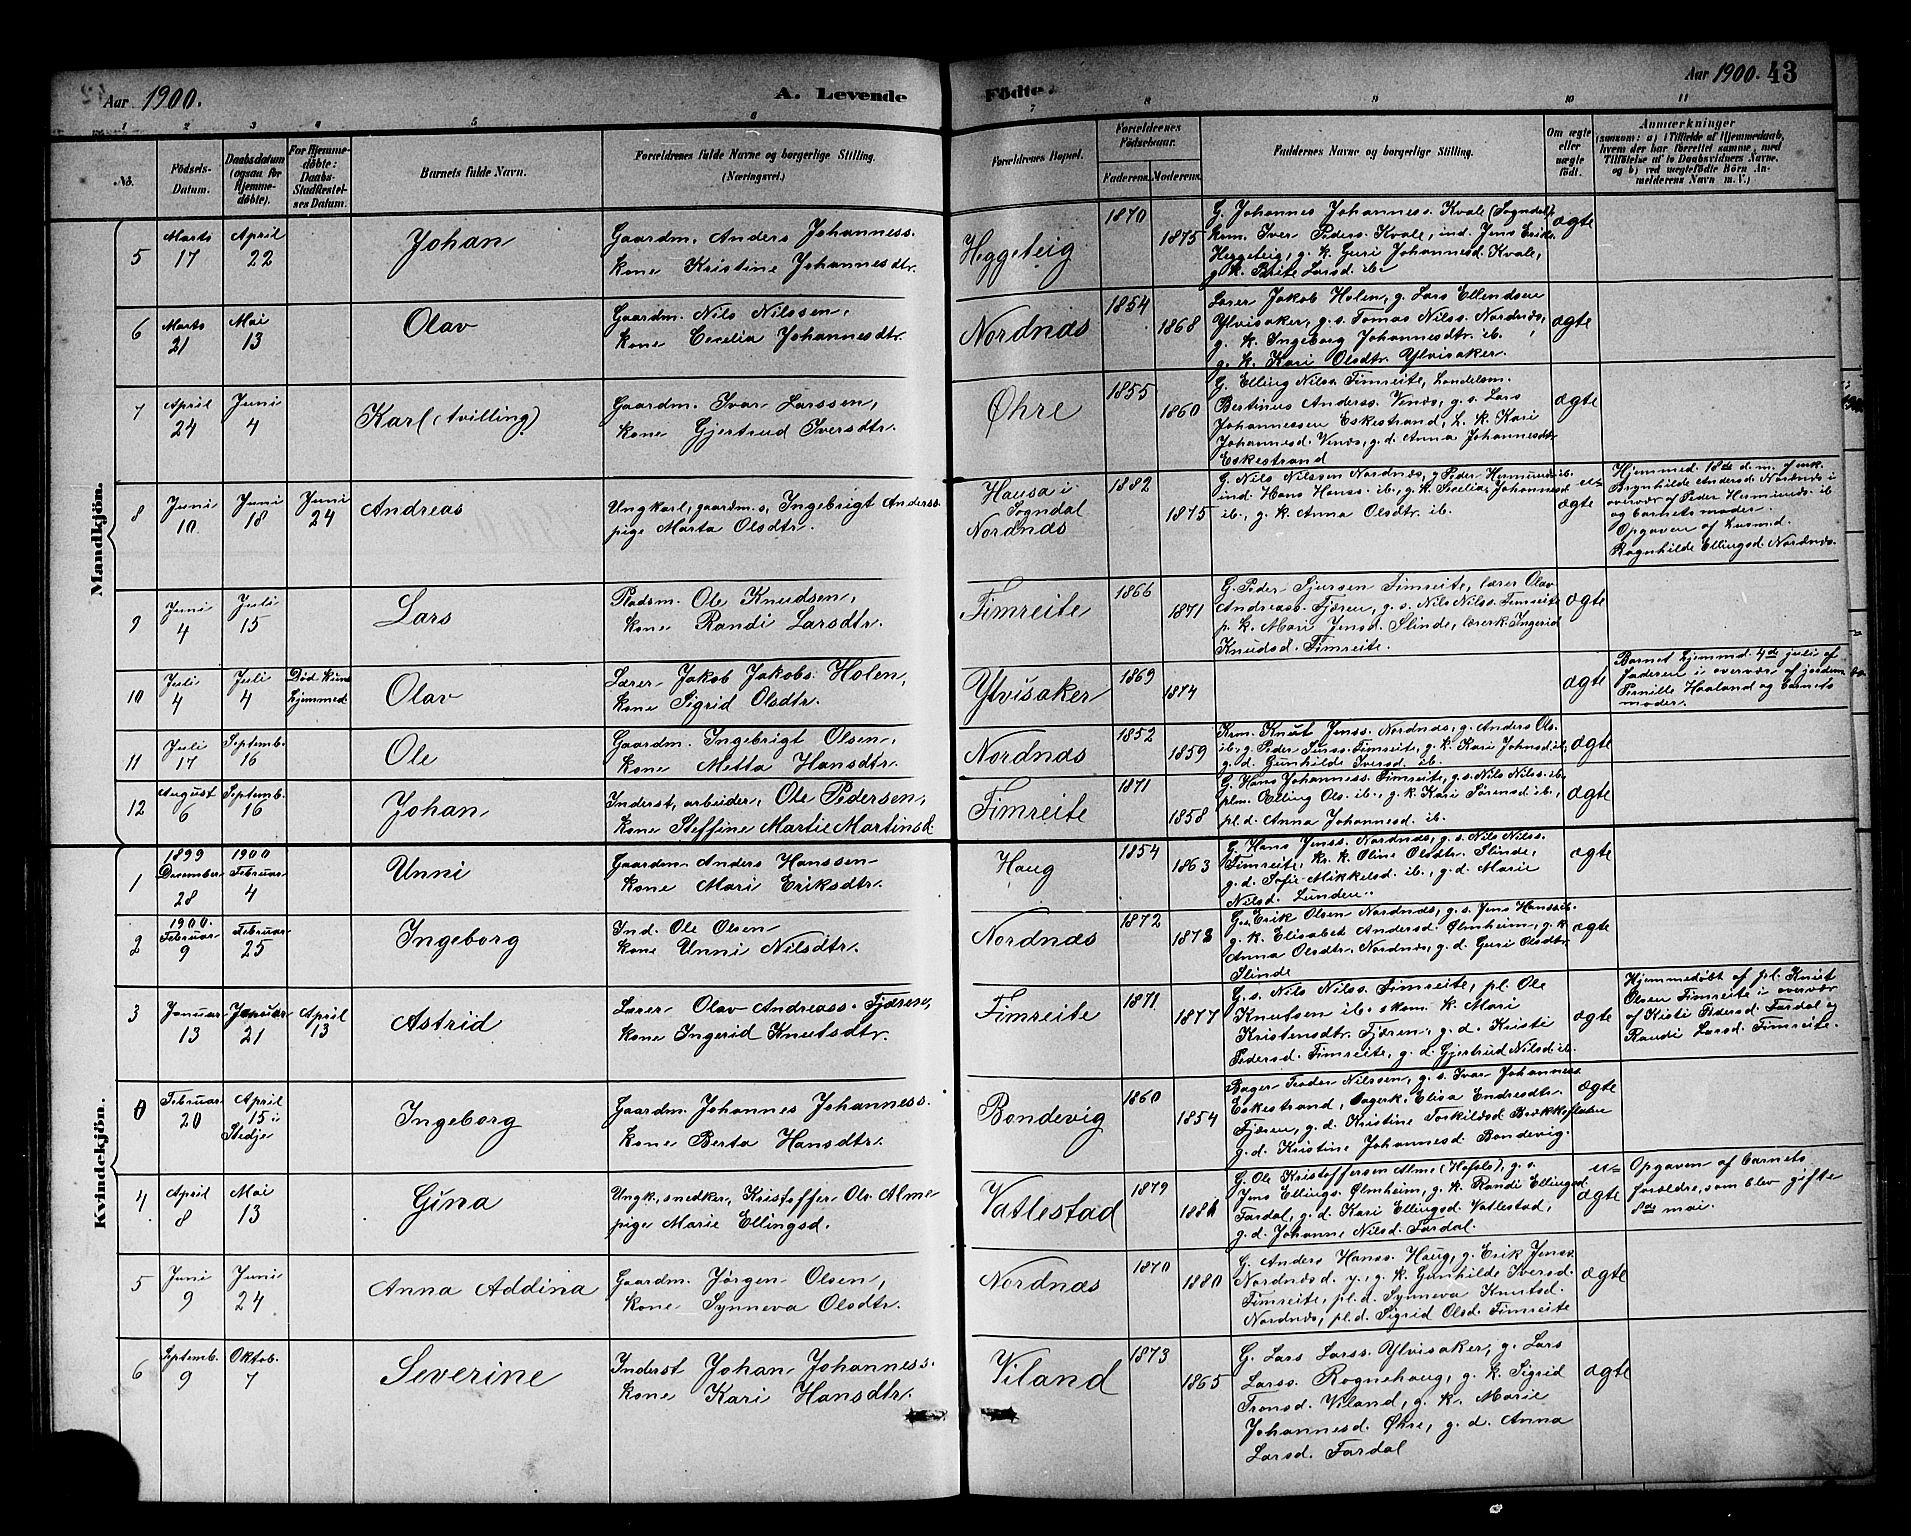 Aar 1900.
A. Levende
Födte.
Aar 1900. 43
1 2 3 4 5 6 7 8 9 10 11
No.
Födsels-
Datum.
Daabsdatum
(ogsaa for
Hjemme-
döbte).
For Hjemme-
döbte:
Daabs-
Stadfæstel-
ses Datum.
Barnets fulde Navn.
Forældrenes fulde Navne og borgerlige Stilling.
(Næringsvei.)
Forældrenes Bopæl.
Forældrenes
Födselsaar.
Faderens. Moderens.
Faddernes Navne og borgerlige Stilling.
Om ægte
eller
uægte
födt.
Anmærkninger
(saasom: a) i Tilfælde af Hjemmedaab,
hvem der har forrettet samme, med
Tilföielse af to Daabsvidners Navne.
og b) ved uægtefödte Börn An-
melderens Navn m. V.)
Mandkjön.
5
Marts
17
April
22
Johan
Gaardm. Anders Johanness.
kone Kristine Johannesdtr.
Heggeteig
1870
1875
G. Johannes Johanness. Kvale (Sogndal),
krm. Iver Peders. Kvale, ind. Jens Eriks.
Heggeteig, g. k. Guri Johannesd. Kvale,
g. k. Brite Larsd. ib.
ægte
6
Marts
21
Mai
13
Olav
Gaardm. Nils Nilssen,
kone Cecelia Johannesdtr.
Nordnæs
1854
1868
Lærer Jakob Holen, g. Lars Ellendsen
Ylvisaker, g. s. Tomas Nilss. Nordnæs,
g. k. Ingeborg Johannesdtr. ib.
g. k. Kari Olsdtr. Ylvisaker.
ægte
7
April
24
Juni
4
Karl (tvilling)
Gaardm. Ivar Larssen,
kone Gjertrud Iversdtr.
Øhre
1855
1860
G. Elling Nilss. Fimreite, Landelsm.
Bertinus Anderss. Venæs, g. s. Lars
Johannessen Eskestrand, L. k. Kari
Johannesd. Venæs, g. d. Anna Johannesdtr.
Eskestrand
ægte
8
Juni
10
Juni
18
Juni
24
Andreas
Ungkarl, gaardm. s, Ingebrigt Anderss.
pige Marta Olsdtr.
Hausa i
Sogndal
Nordnæs
1882
1875
G. Nils Nilssen Nordnæs, g Peder Hermunds. ib.
ind. Hans Henss. ib., g. k. Secelia Johannesd
ib., g. k. Anna Olsdtr. ib.
u=
ægte
Hjemmed. 18de d. m. af enk.
Brynhilde Andersd Nordnæs i
overvær af Peder Hermunds. ib
og barnets moder.
Opgaven af husmd.
Ragnhilde Ellingsd. Nordnæs.
9
Juni
4
Juli
15
Lars
Pladsm. Ole Knudsen,
kone Randi Larsdtr.
Fimreite
1866
1871
G. Peder Sjursen Fimreite, lærer Olav
Andreass. Fjæren, g. s. Nils Nilss. Fimreite
p. k. Mari Jensd. Slinde, lærerk. Ingerid
Knudsd. Fimreite.
ægte
10
Juli
4
Juli
4
Død kun
hjemmed
Olav
Lærer Jakob Jakobs. Holen,
kone Sigrid Olsdtr.
Ylvisaker
1869
1874
ægte
Barnet hjemmd. 4de juli af
faderen i overvær af jordem.
Pernille Haaland og barnets
moder.
11
Juli
17
Septemb.
16
Ole
Gaardm. Ingebrigt Olsen,
kone Metta Hansdtr.
Nordnæs
1852
1859
Krm. Knut Jenss. Nordnæs, g. Anders Ols.
ib., g. Peder Jenss. Fimreite, g. k. Kari Johnsd ib,
g. d. Gunhilde Iversd. ib.
ægte
12
August
6
Septemb.
16
Johan
Inderst, arbeider, Ole Pedersen,
kone Steffine Martie Martinsd
Fimreite
1871
1858
G. Hans Johanness. Fimreite, g. s. Nils Nils. ib.
plm. Elling Ols. ib., g. k. Kari Sørensd ib.,
pl. d. Anna Johannesd. ib.
ægte
Kvindekjön.
1
1899
December
28
1900
Februar
4
Unni
Gaardm. Anders Hanssen
kone Mari Eriksdtr.
Haug
1854
1863
G. Hans Jenss. Nordnæs, g. s. Nils Nilss.
Fimreite, kr. k. Oline Olsdtr. Slinde,
g. d. Sofie Mikkelsd. ib., g. d. Marie
Nilsd. Lunden.
ægte
2
1900.
Februar
9
Februar
25
Ingeborg
Ind. Ole Olsen
kone Unni Nilsdtr.
Nordnæs
1872
1873
G. Erik Olsen Nordnæs, g. s. Jens Hanss. ib.
g. k. Elisabet Andersd. Ølmheim, g. k
Anna Olsdtr. Nordnæs, g. d. Guri Olsdtr.
Slinde
ægte
3
Januar
13
Januar
21
April
13
Astrid
Lærer Olav Andreass. Fjæren,
kone Ingerid Knutsdtr.
Fimreite
1871
1877
G. s. Nils Nilss. Fimreite, pl. Ole
Knutsen ib. skm. k. Mari
Kristensdtr. Fjæren, g. d. Kristi
Pedersd. Fimreite, g. d. Gjertrud Nilsd ib.
ægte
Hjemmedøbt af pl. Knut
Olsen Fimreite i overvær
af Kisti Pedersd. Fardal og
Randi Larsd. Fimreite.
0
Februar
20
April
15 i
Stedje
Ingeborg
Gaardm. Johannes Johanness.
kone Berta Hansdtr.
Bondevig
1860
1854
Bager Troder Nilssen, g. s. Ivar Johanness
Eskestrand, bagerk. Elisa Endresdtr.
Fjæren, g. d. Kristine Torkildsd Brækkeflaten
g. d. Kristine Johannesd. Bondevig.
ægte
4
April
8
Mai
13
Gina
Ungk, snedker, Kristoffer Ols. Alme
pige Marie Ellingsd.
Vatlestad
1879
1881
G. Ole Kristoffersen Alme (Hafslo), g. s.
Jens Ellings. Ølmheim, g. k. Randi Ellingsd
Fardal, g. d. Kari Ellingsd. Vatlestad,
g. d. Johanne Nilsd. Fardal.
u=
ægte
Opgaven af barnets
forældre, som blev gifte
8de mai.
5
Juni
9
Juni
24
Anna Addina
Gaardm. Jörgen Olsen,
kone Synneva Olsdtr.
Nordnæs
1870
1880
G. Anders Hanss. Haug, g. Erik Jenss.
Nordnæs d. y., g. k. Gunhilde Iversd.
Fimreite, pl. d. Synneva Knutsd.
Nordnæs, pl. d. Sigrid Olsd. Fimreite
ægte
6
Septemb.
9
Oktob.
7
Severine
Inderst Johan Johanness.
kone Kari Hansdtr.
Viland
1873
1865
G. Lars Larss. Ylvisaker, g. Lars
Larss. Rognehaug, g. k. Sigrid
Tronsd. Viland, g. k. Marie
Johannesd. Øhre, g. d. Anna
Larsd. Fardal
ægte